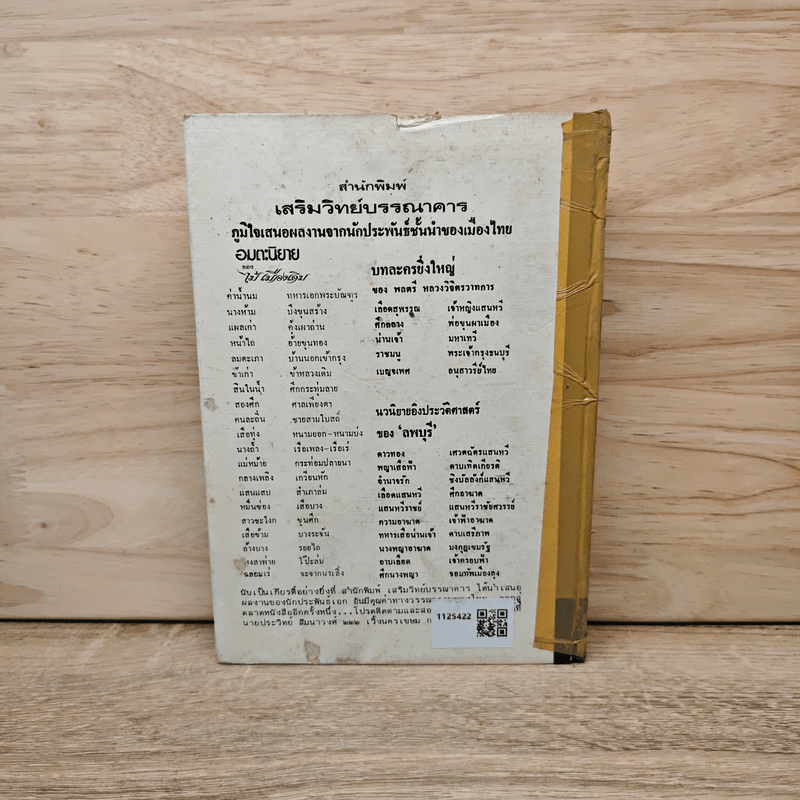 สำนักพิมพ์
เสริมวิทย์บรรณาคาร
ภูมิใจเสนอผลงานจากนักประพันธ์ชั้นนำของเมืองไทย
อมตะนิยาย
ของ
ไม้ เมืองเดิม
ค่าน้ำนม ทหารเอกพระบัณฑูร
นางห้าม บึงขุนสร้าง
แผลเก่า คุ้งเผาถ่าน
หน้าไถ อ้ายขุนทอง
ลมตะเภา บ้านนอกเข้ากรุง
ข้าเก่า ข้าหลวงเดิม
สินในน้ำ ศึกกระทุ่มลาย
สองศึก ศาลเพียงตา
คนละถิ่น ชายสามโบสถ์
เสือทุ่ง หนามยอก-หนามบ่ง
นางถ้ำ เรือเพลง-เรือเร่
แม่หม้าย กระท่อมปลายนา
กลางเพลิง เกวียนหัก
แสนแสบ สำเภาล่ม
หมื่นซ่อง เสือบาง
สาวชะโงก ขุนศึก
เสือข้าม บางระจัน
ล้างบาง รอยไถ
สายท่าย โป๊ะล่ม
ฉลอมเร่
บทละครยิ่งใหญ่
ของ พลตรี หลวงวิจิตรวาทการ
เลือดสุพรรณ เจ้าหญิงแสนหวี
ศึกถลาง พ่อขุนผาเมือง
น่านเจ้า มหาเทวี
ราชมนู พระเจ้ากรุงธนบุรี
เบญจเพศ อนุสาวรีย์ไทย
นวนิยายอิงประวัติศาสตร์
ของ 'ลพบุรี'
ดาวทอง เศวตฉัตรแสนหวี
พญาเสือฟ้า ดาบเทิดเกียรติ
อำนาจรัก ชิงบัลลังก์แสนหวี
เลือดแสนหวี ศึกอาฆาต
แสนหวีราชย์ แสนหวีราชัยศวรรย์
ความอาฆาต เจ้าฟ้าอาฆาต
ทหารเสือน่านเจ้า ดาบเสรีภาพ
นางพญาอาฆาต มงกุฎเขมรัฐ
อาบเลือด เจ้าครอบฟ้า
ศึกนางพญา จอมทัพเมืองลุง
นับเป็นเกียรติอย่างยิ่งที่ สำนักพิมพ์ เสริมวิทย์บรรณาคาร ได้นำเสนอ
ผลงานของนักประพันธ์เอก อันมีคุณค่าทาง
ตลาดหนังสืออีกครั้งหนึ่ง...โปรดติดตาม
นายประวิทย์ สัมนาวงศ์ ๒๒๒ เวิ้งนครเขษม
1125422